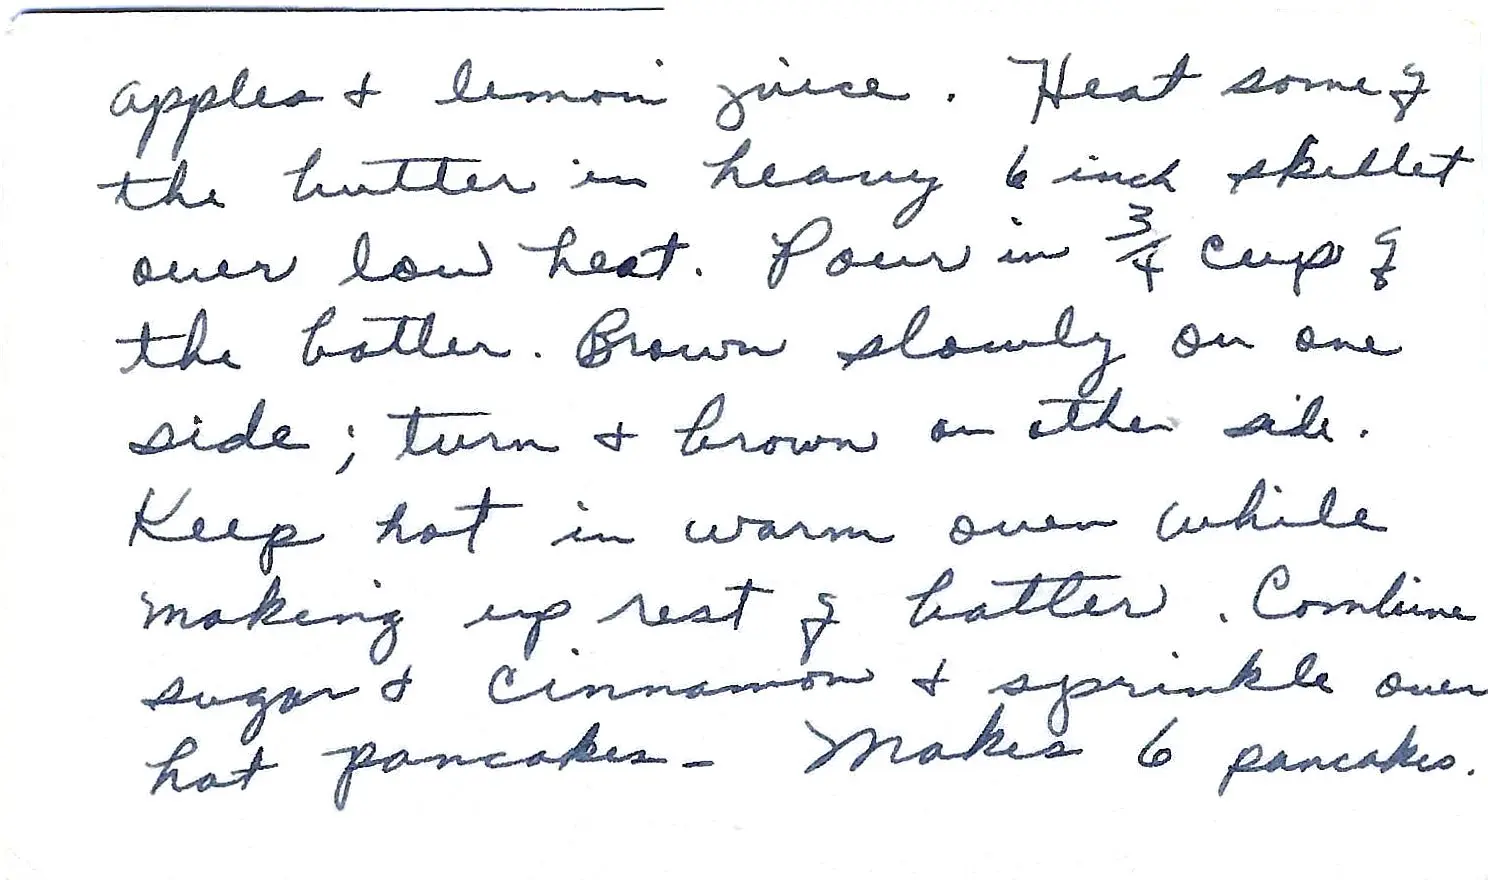 apples & lemon juice. Heat some of
the butter in heavy 6 inch skillet
over low heat. Pour in 3/4 cup of
the batter. Brown slowly on one
side; turn & brown on other side.
Keep hot in warm oven while
making up rest of batter. Combine
sugar & cinnamon & sprinkle over
hot pancakes - Makes 6 pancakes.